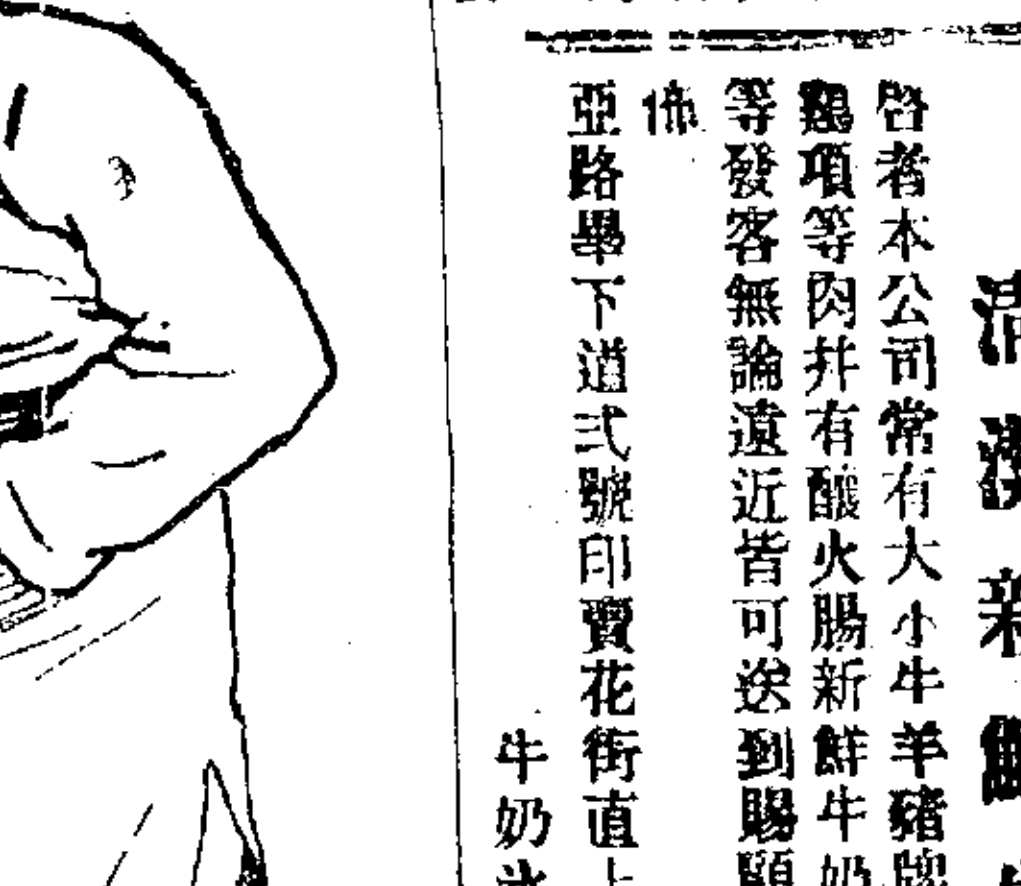 清潔新鮮
啓者本公司常有大小牛羊豬牌
鷄項等肉并有釀火腸新鮮牛奶
等發客無論遠近皆可送到賜顧
佈
亞路畢下道弍號印寶花街直上
牛奶冰